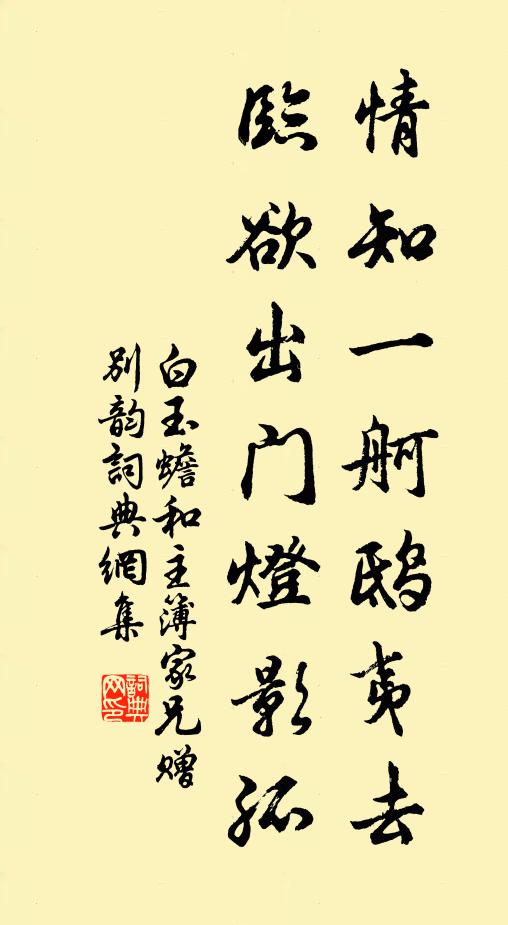 情知一舸鸱夷去
臨欲出门燈影孤
白玉蟾和主簿家兄赠
别韵詞典網集
詞典
网印